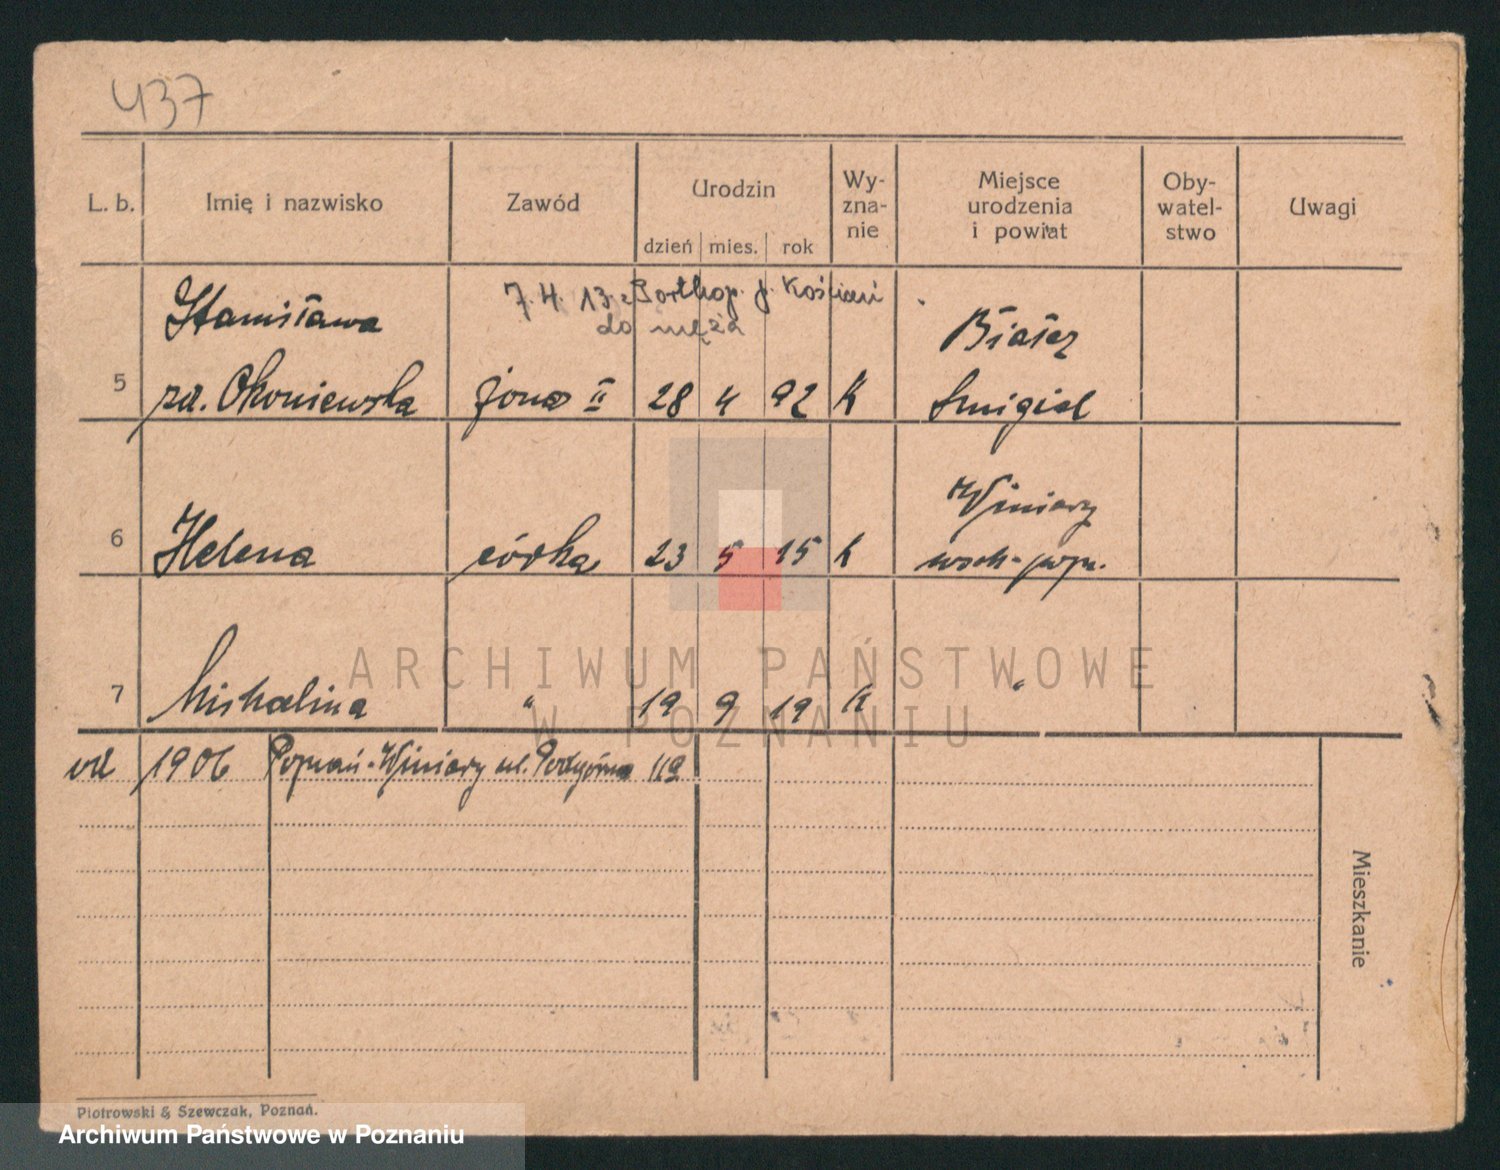 437
L. b.
Imię i nazwisko
Zawód
Urodzin
dzień mies. rok
Wy-
zna-
nie
Miejsce
urodzenia
i powiat
Oby-
watel-
stwo
Uwagi
7. 4. 13. z Kościan
do męża
Stanisława
Białcz
5 zd. Okoniewska żona II 28 4 92 K Śmigiel
Winiary
6 Helena córka 23 5 15 K wsch-pozn.
7 Michalina " 19 9 19 K "
od 1906 Poznań-Winiary ul. Podgórna 11a
Mieszkanie
ARCHIWUM PAŃSTWOWE
W POZNANIU
Piotrowski & Szewczak, Poznań.
Archiwum Państwowe w Poznaniu